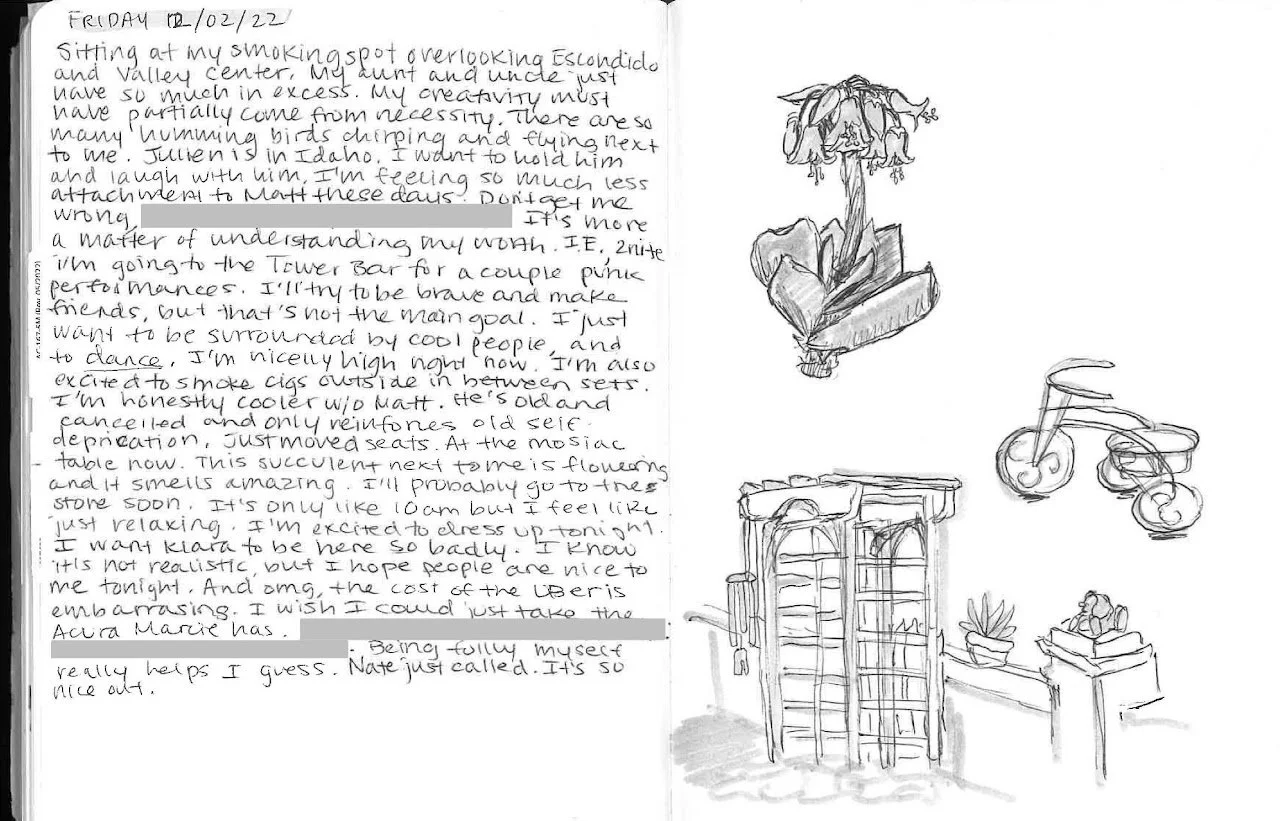 FRIDAY 12/02/22
Sitting at my smoking spot overlooking Escondido
and Valley Center. My aunt and uncle just
have so much in excess. My creativity must
have partially come from necessity. There are so
many humming birds chirping and flying next
to me. Julien is in Idaho. I want to hold him
and laugh with him. I'm feeling so much less
attachment to Matt these days. Don't get me
wrong, It's more
a matter of understanding my worth. I.E, 2nite
i'm going to the Tower Bar for a couple punk
performances. I'll try to be brave and make
friends, but that's not the main goal. I just
want to be surrounded by cool people, and
to dance. I'm nicely high right now. I'm also
excited to smoke cigs outside in between sets.
I'm honestly cooler w/o Matt. He's old and
cancelled and only reinforces old self
deprication. Just moved seats. At the mosiac
table now. This succulent next to me is flowering
and it smells amazing. I'll probably go to the
store soon. It's only like 10am but I feel like
just relaxing. I'm excited to dress up tonight.
I want Klara to be here so badly. I know
it's not realistic, but I hope people are nice to
me tonight. And omg, the cost of the Uber is
embarrasing. I wish I could just take the
Acura Marcie has.
. Being fully myself
really helps I guess. Nate just called. It's so
nice out.